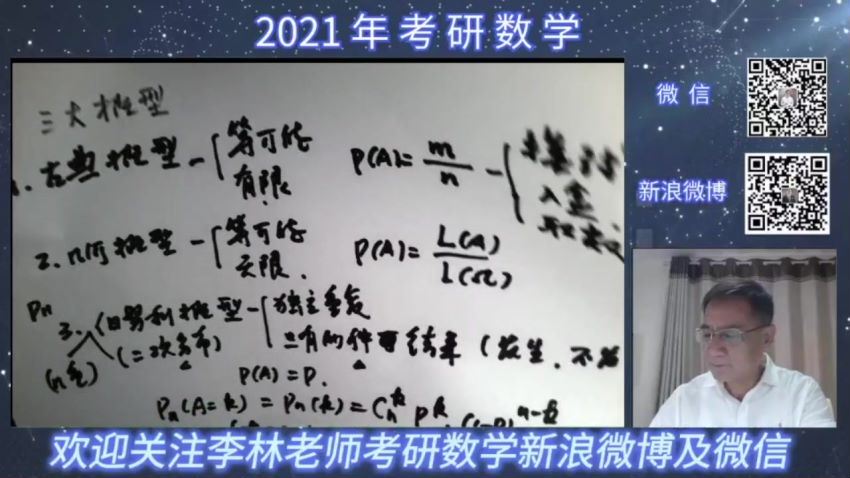 2021年考研数学
微信
新浪微博
三大概型
1. 古典概型 - 等可能
有限
P(A)= m/n
入盒
2. 几何概型 - 等可能
无限.
P(A)= L(A)/L(Ω)
Pn
3. 伯努利概型 - 独立重复
(n重) (二项分布) 只有两种结果 (发生, 不
P(A)=P.
Pn(A=k) = Pn(k) = C_n^k P^k (1-P)^{n-k}
欢迎关注李林老师考研数学新浪微博及微信